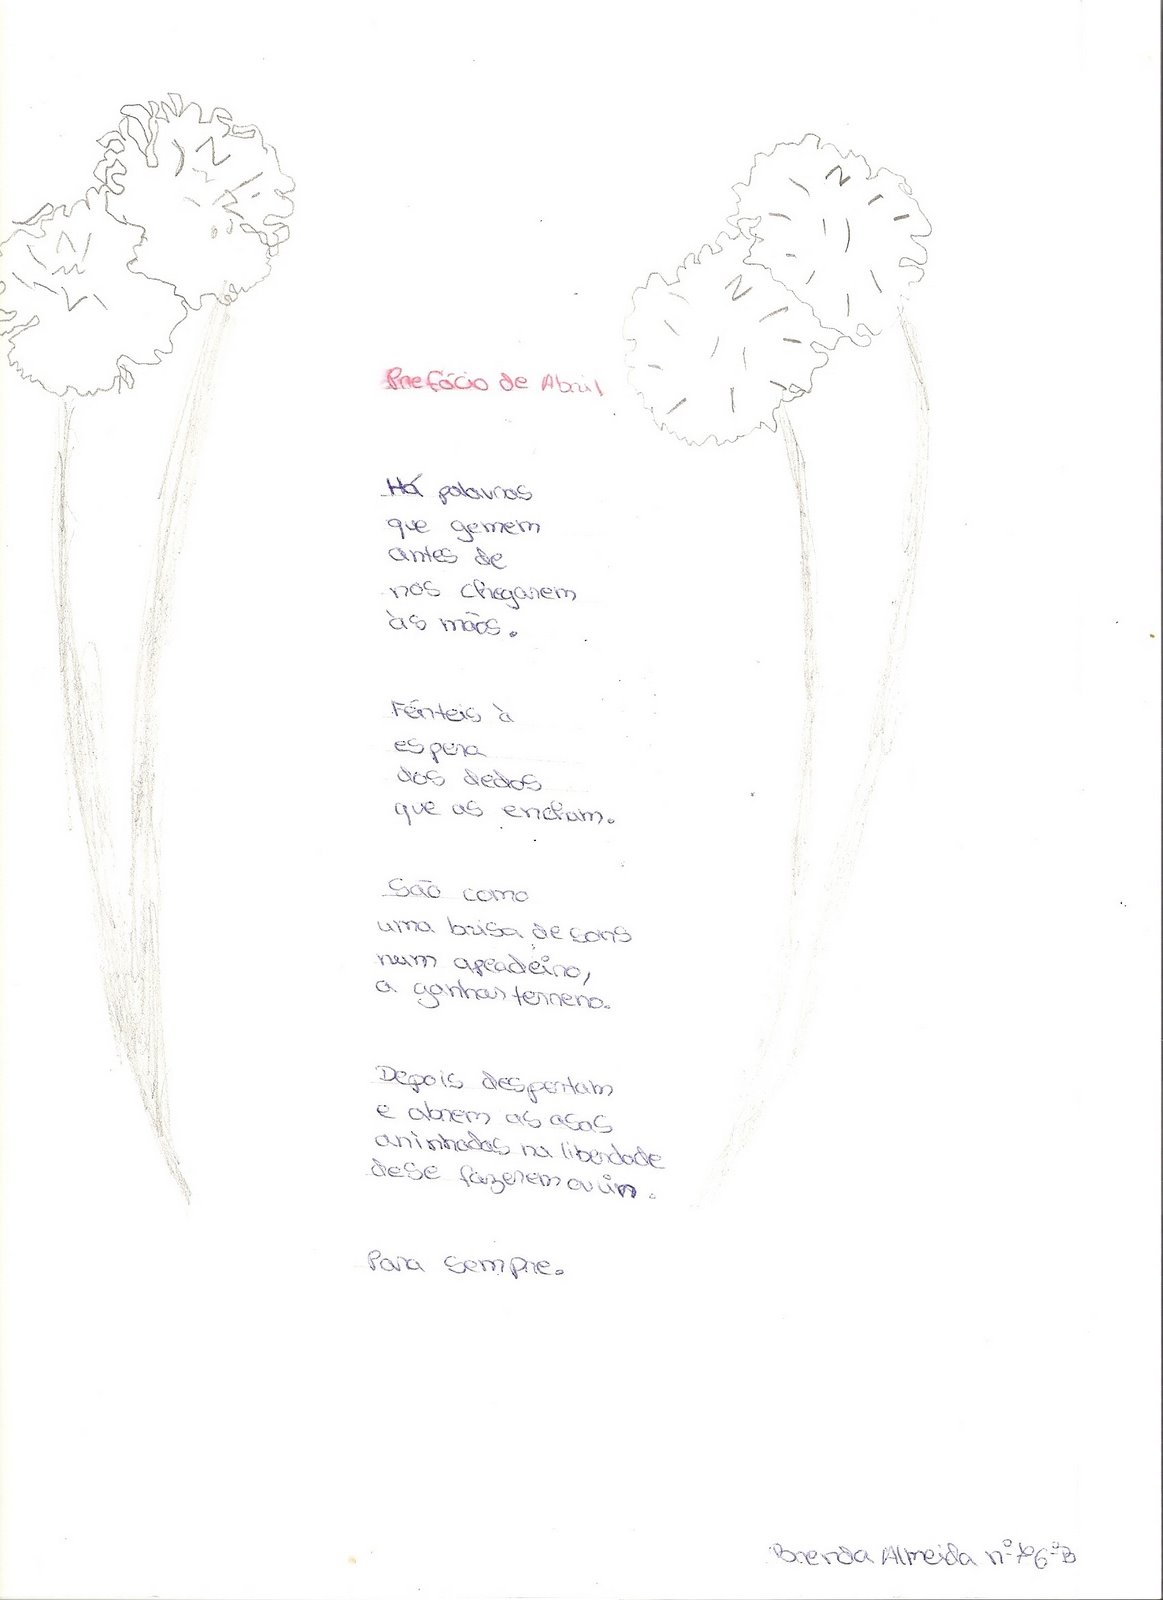 Prefácio de Abril
Há palavras
que gemem
antes de
nos chegarem
às mãos.
Férteis à
espera
dos dedos
que as
São como
uma brisa de sons
num apeadeiro,
a ganhar terreno.
Depois despertam
e abrem as asas
aninhadas na liberdade
de se fazerem ouvir.
Para sempre.
Brenda Almeida nº 6ºB